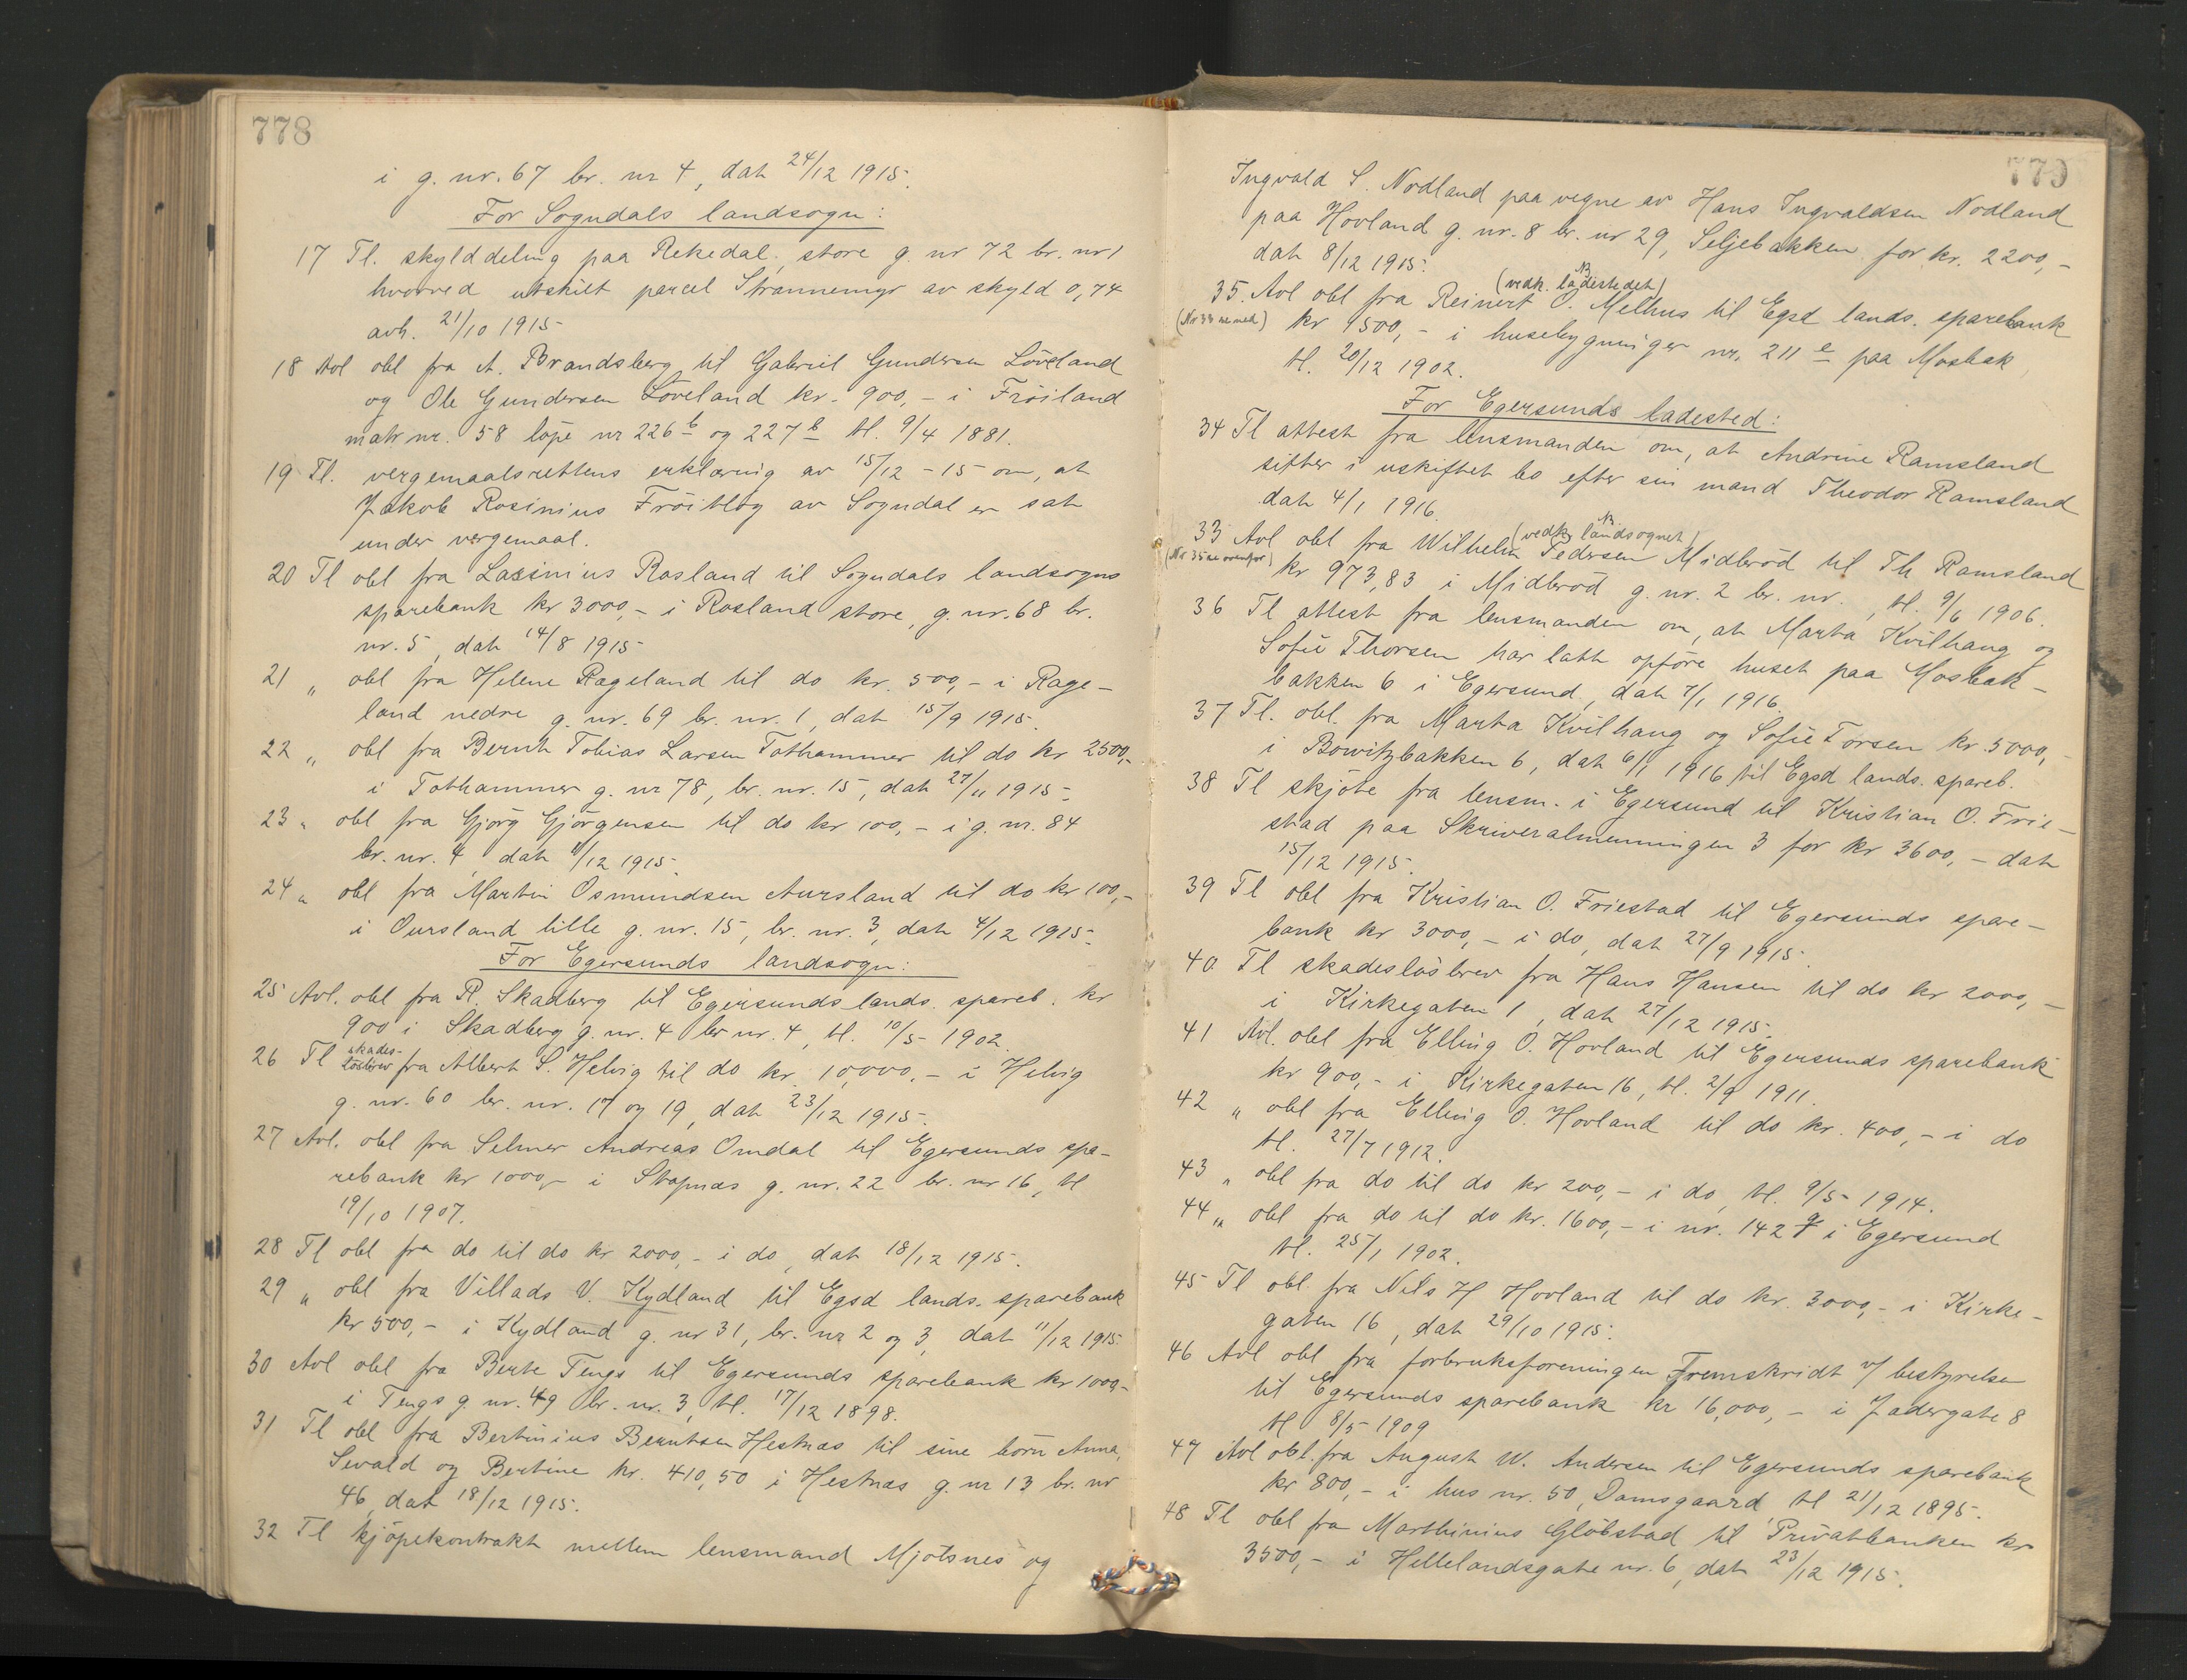 778
i g. nr. 67 br. nr 4, dat 24/12 1915.
For Sogndals landsogn:
17 Tl. skylddeling paa Rekedal, store g. nr 72 br. nr 1
hvorved utskilt parcel Strannemyr av skyld 0,74
avh. 21/10 1915
18 Avl obl fra A. Brandsberg til Gabriel Gundersen Löveland
og Ole Gundersen Löveland kr. 900,- i Fröiland
matr nr. 58 löpe nr 226 b og 227 b tl. 9/4 1881.
19 Tl. vergemaalsrettens erklæring av 15/12 - 15 om, at
Jakob Rosinius Fröitlog av Sogndal er sat
under vergemaal.
20 Tl obl fra Lasinius Rosland til Sogndals landsogns
sparebank kr 3000,- i Rosland store, g. nr. 68 br.
nr. 5, dat 14/8 1915
21 „ obl fra Helene Rageland til do kr. 500,- i Rage-
land nedre g. nr. 69 br. nr. 1, dat 15/9 1915.
22 „ obl fra Bernh Tobias Larsen Tothammer til do kr 2500,-
i Tothammer g. nr 78, br. nr. 15, dat 27/11 1915.
23 „ obl fra Gjörg Gjörgensen til do kr 100,- i g. nr. 84
br. nr. 4, dat 11/12 1915.
24 „ obl fra Martin Osmundsen Aursland til do kr 100,-
i Oursland lille g. nr. 15, br. nr. 3, dat 4/12 1915.
For Egersunds landsogn:
25 Avl. obl fra R. Skadberg til Egersunds lands. spareb. kr
900 i Skadberg g. nr. 4 br nr. 4, tl. 10/5 1902.
26 Tl skades-
löstbrev fra Albert S. Helvig til do kr. 10,000,- i Helvig
g. nr. 60 br. nr. 17 og 19, dat 23/12 1915.
27 Avl. obl fra Selmer Andreas Omdal til Egersunds spa-
rebank kr 1000,- i Stapnæs g. nr. 22 br. nr 16, tl
19/10 1907.
28 Tl obl fra do til do kr 2000,- i do, dat 18/12 1915.
29 „ obl fra Villads V. Kydland til Egsd lands. sparebank
kr 500,- i Kydland g. nr 31, br. nr 2 og 3, dat 11/12 1915.
30 Avl obl fra Berte Tengs til Egersunds sparebank kr 1000,-
i Tengs g. nr. 49 br. nr. 3, tl. 17/12 1898.
31 Tl obl fra Bertinius Berntsen Hestnæs til sine börn Anna,
Sevald og Bertine kr. 410,50 i Hestnæs g. nr 13 br. nr
46, dat 18/12 1915.
32 Tl kjöpekontrakt mellem lensmand Mjölsnes og
779
Ingvald S. Nodland paa vegne av Hans Ingvaldsen Nodland
paa Hovland g. nr. 8 br. nr 29, Seljebakken for kr. 2200,-
dat 8/12 1915.
NB
(vedk. ladestedet)
35. Avl obl fra Reinert O. Melhus til Egsd lands. sparebank
(Nr 33 se ned) kr 1500,- i husebygninger nr. 211 e paa Mosbak,
tl. 20/12 1902.
For Egersunds ladested:
34 Tl attest fra lensmanden om, at Andrine Ramsland
sitter i uskiftet bo efter sin mand Theodor Ramsland
dat 4/1 1916.
NB
(vedk. landsognet)
33 Avl obl fra Wilhelm Pedersen Midbröd til Th Ramsland
(Nr 35 se ovenfor) kr 973,83 i Midbröd g. nr. 2 br. nr. , tl. 9/6 1906.
36 Tl attest fra lensmanden om, at Marta Kvilhaug og
Sofie Thorsen har latt opföre huset paa Mosbak-
bakken 6 i Egersund, dat 7/1 1916.
37 Tl. obl. fra Marta Kvilhaug og Sofie Torsen kr. 5000,-
i Bowitzbakken 6, dat 6/1 1916 til Egsd lands. spareb.
38 Tl skjöte fra lensm. i Egersund til Kristian O. Frie-
stad paa Skriveralmenningen 3 for kr 3600,- dat
15/12 1915.
39 Tl obl fra Kristian O. Friestad til Egersunds spare-
bank kr 3000,- i do, dat 27/9 1915.
40 Tl skadeslösbrev fra Hans Hansen til do kr 2000,-
i Kirkegaten 1, dat 27/12 1915.
41 Avl. obl fra Elling O. Hovland til Egersunds sparebank
kr 900,- i Kirkegaten 16, tl. 2/9 1911.
42 „ obl fra Elling O. Hovland til do kr. 400,- i do
tl. 27/7 1912.
43 „ obl fra do til do kr 200,- i do, tl. 9/5 1914.
44 „ obl fra do til do kr. 1600,- i nr. 142 g i Egersund
tl. 25/1 1902.
45 Tl obl. fra Nils H Hovland til do kr. 3000,- i Kirke-
gaten 16, dat 29/10 1915.
46 Avl obl fra forbruksforeningen Fremskridt v/ bestyrelse
til Egersunds sparebank kr 16,000,- i Jadergate 8
tl 8/5 1909
47 Avl obl. fra August W. Andersen til Egersunds sparebank
kr 800,- i hus nr. 50, Damsgaard tl 21/12 1895.
48 Tl obl fra Marthinius Glöbstad til Privatbanken kr
3500,- i Hellelandsgate nr. 6, dat 23/12 1915.